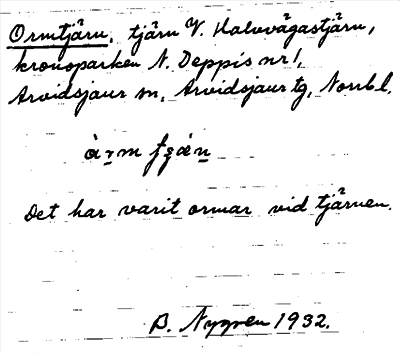 Ormtjärn, tjärn V. Halvvägastjärn,
kronoparken N. Deppis nr 1,
Arvidsjaur sn, Arvidsjaur tg, Norrb l.
Det har varit ormar vid tjärnen.
B. Nygren 1932.